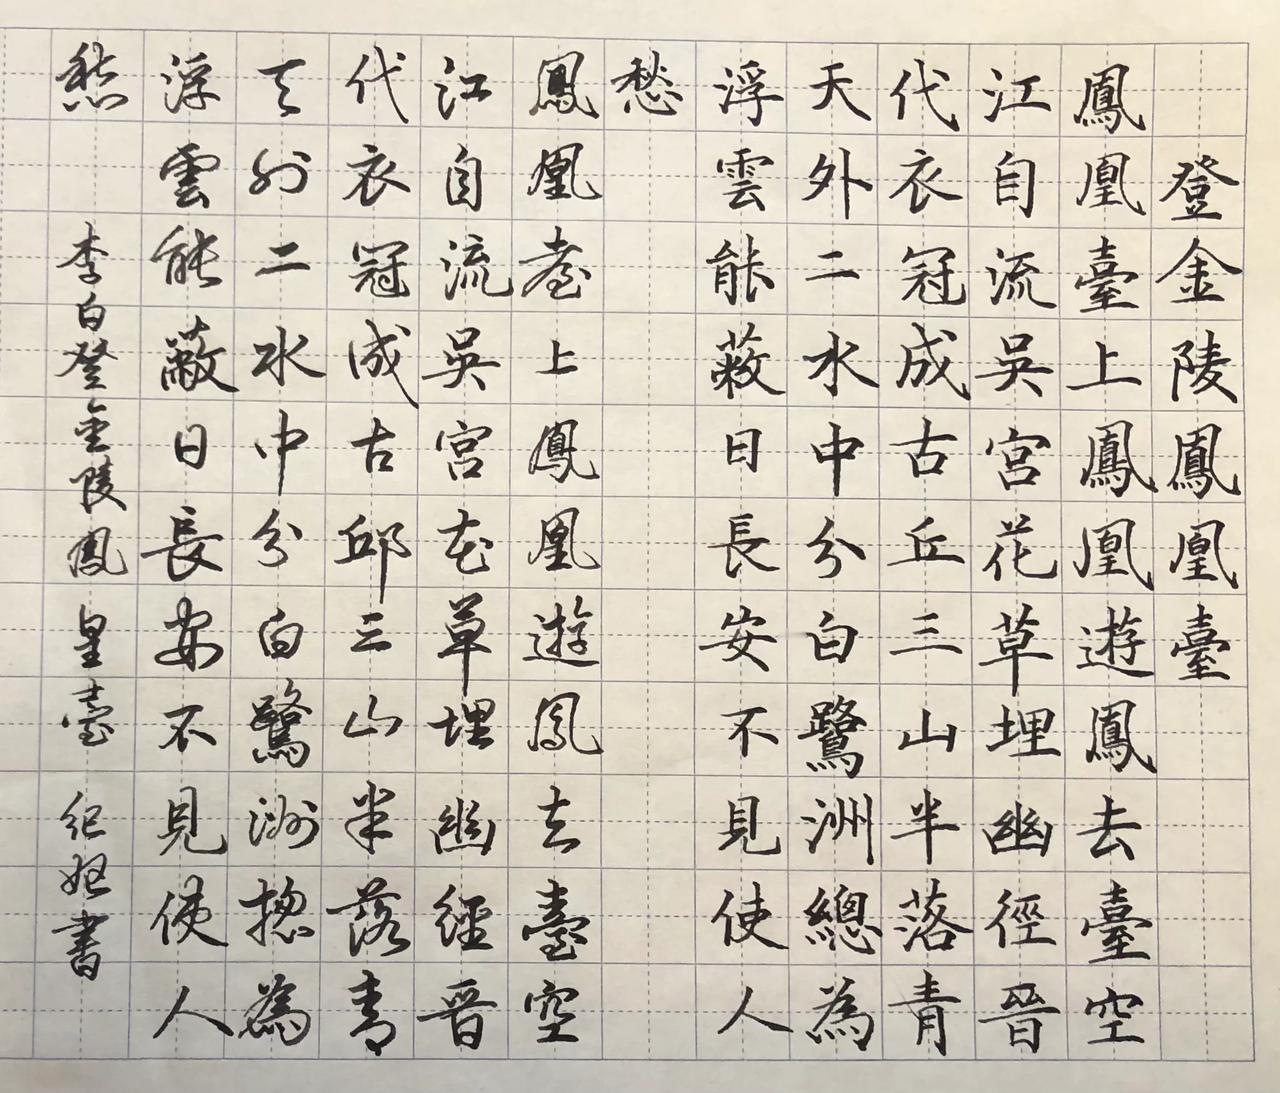 登金陵鳳凰臺
鳳凰臺上鳳凰遊鳳去臺空
江自流吳宮花草埋幽徑晉
代衣冠成古丘三山半落青
天外二水中分白鷺洲總為
浮雲能蔽日長安不見使人
愁
鳳凰臺上鳳凰遊鳳去臺空
江自流吳宮花草埋幽經晉
代衣冠成古邱三山半落青
天外二水中分白鷺洲摠為
浮雲能蔽日長安不見使人
愁 李白登金陵鳳皇臺 紀妃書